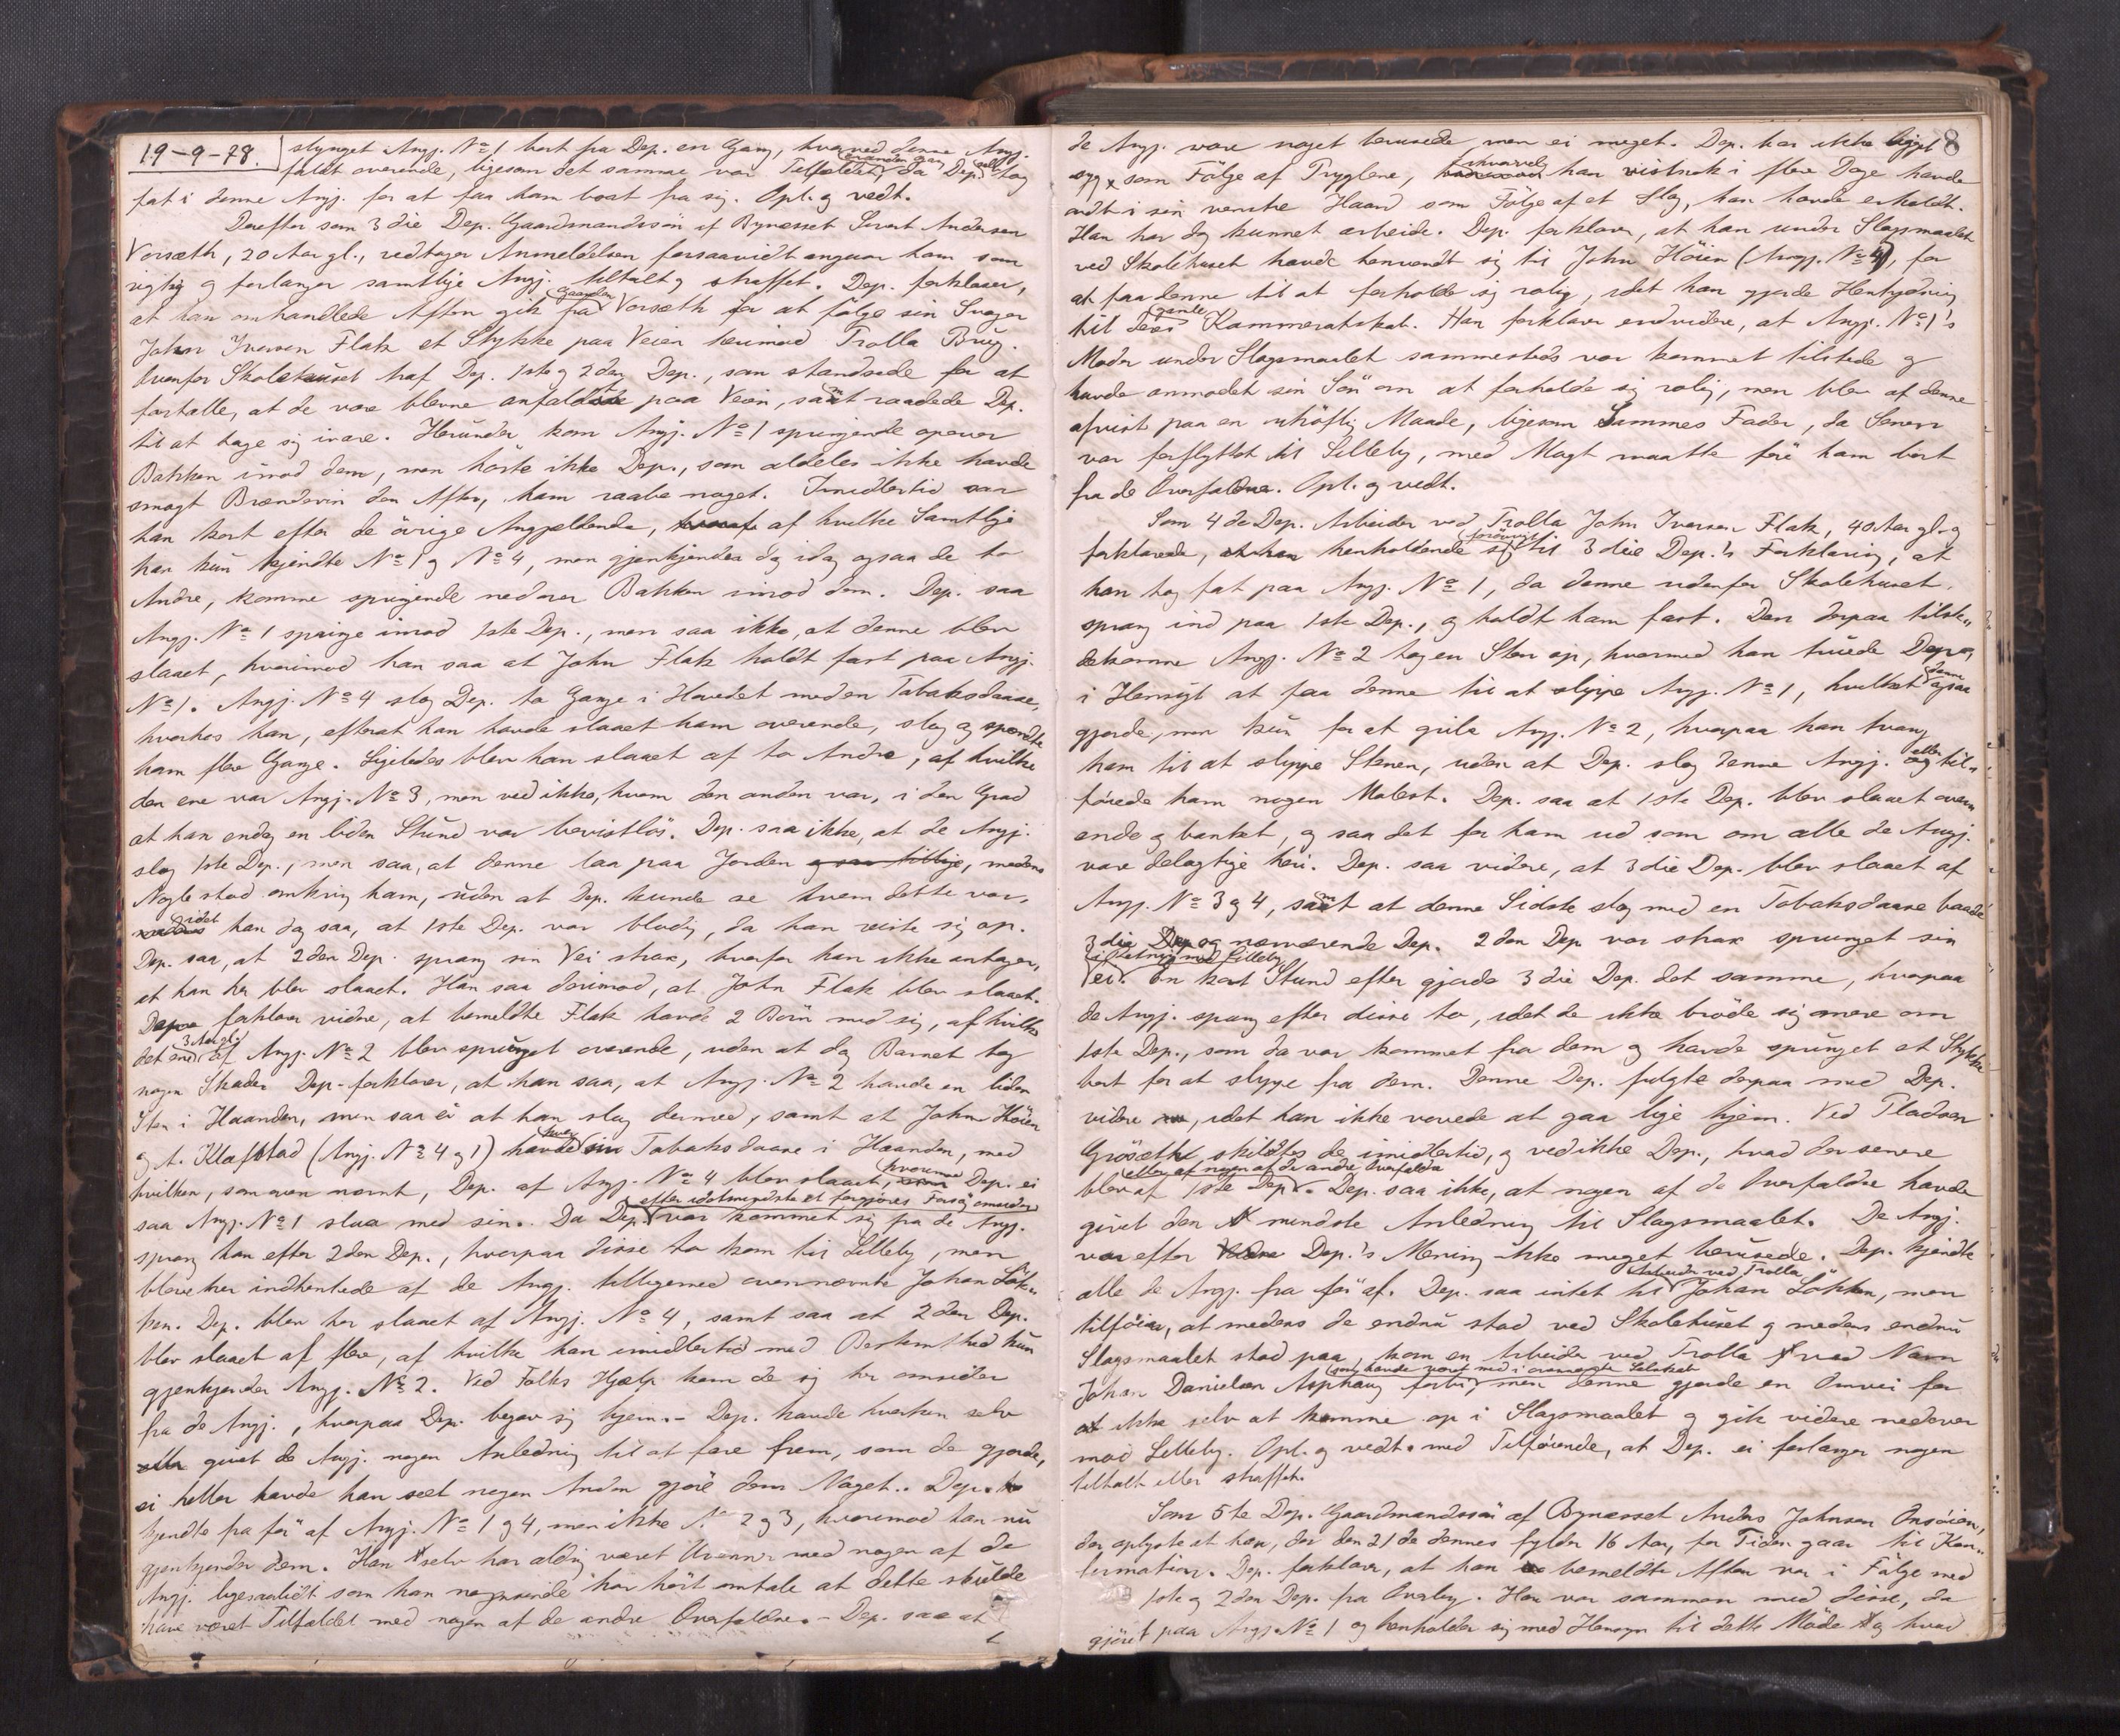 19-9-78.
slynget Angj. No 1 bort fra Dep. en Gang, hvorved denne Angj.
faldt overende, ligesom det samme var Tilfældet en anden Gang da Dep. selv tog
fat i denne Angj. for at faa ham bort fra sig. Opl. og vedt.
Derefter som 3die Dep. Gaardmandssøn af Bynæsset Sivert Andersen
Vorsæth, 20 Aar gl., vedtager Anmeldelsen forsaavidt angaar ham som
rigtig og forlanger samtlige Angj. tiltalt og straffet. Dep. forklarer,
at han omhandlede Aften gik fra Gaarden Vorsæth for at følge sin Svoger
John Iversen Flak et Stykke paa Veien henimod Trolla Brug.
Ovenfor Skolehuset traf Dep. 1ste og 2den Dep., som standsede for at
fortælle, at de vare blevne anfaldte paa Veien, samt raadede Dep.
til at tage sig ivare. Herunder kom Angj. No 1 springende opover
Bakken imod dem, men hörte ikke Dep., som aldeles ikke havde
smagt Brændevin den Aften, ham raabe noget. Imidlertid saa
han kort efter de övrige Angjeldende, af hvilke Samtlige
han kun kjendte No 1 og No 4, men gjenkjender dog idag ogsaa de to
Andre, komme springende nedover Bakken imod dem. Dep. saa
Angj. No 1 springe imod 1ste Dep., men saa ikke, at denne blev
slaaet, hvorimod han saa at John Flak holdt fast paa Angj.
No 1. Angj. No 4 slog Dep. to Gange i Hovedet med en Tobaksdaase,
hvorhos han, efterat han havde slaaet ham overende, slog og spændte
ham flere Gange. Ligeledes blev han slaaet af to Andre, af hvilke
den ene var Angj. No 3, men ved ikke, hvem den anden var, i den Grad
at han endog en liden Stund var bevistlös. Dep. saa ikke, at de Angj.
slog 1ste Dep., men saa, at denne laa paa Jorden og saa tillige, medens
Nogle stod omkring ham, uden at Dep. kunde se hvem dette var,
idet han dog saa, at 1ste Dep. var blodig, da han reiste sig op.
Dep. saa, at 2den Dep. sprang sin Vei strax, hvorfor han ikke antager,
at han her blev slaaet. Han saa derimod, at John Flak blev slaaet.
Dep. forklarer videre, at bemeldte Flak havde 2 Börn med sig, af hvilke
det ene 3 Aar gl. af Angj. No 2 blev sprunget overende, uden at dog Barnet tog
nogen Skade. Dep. forklarer, at han saa, at Angj. No 2 havde en liden
Sten i Haanden, men saa ei at han slog dermed, samt at John Höien
og A. Klefstad (Angj. No 4 og 1) havde hver sin Tobaksdaase i Haanden, med
hvilken, som oven nævnt, Dep. af Angj. No 4 blev slaaet, hvorimod Dep. ei
saa Angj. No 1 slaa med sin. Da Dep. efter idetmindste et forgjæves Forsög omsider var kommet sig fra de Angj.
sprang han efter 2den Dep., hvorpaa disse to kom til Lilleby, men
bleve her indhentede af de Angj. tilligemed ovennævnte Johan Lök-
ken. Dep. blev her slaaet af Angj. No 4, samt saa at 2den Dep.
blev slaaet af flere, af hvilke han imidlertid med Bestemthed kun
gjenkjender Angj. No 2. Ved Folks Hjælp kom de sig her omsider
fra de Angj., hvorpaa Dep. begav sig hjem. - Dep. havde hverken selv
givet de Angj. nogen Anledning til at fare frem, som de gjorde,
ei heller havde han seet nogen Anden gjöre dem Noget. Dep.
kjendte fra för af Angj. No 1 og 4, men ikke No 2 og 3, hvorimod han nu
gjenkjender dem. Han selv har aldrig været Uvenner med nogen af de
Angj. ligesaalidt som han nogensinde har hört omtale at dette skulde
have været Tilfældet med nogen af de andre Overfaldne. - Dep. saa at
8
de Angj. vare noget berusede, men ei meget. Dep. har ikke ligget
syg som Fölge af Pryglene, hvorvel han vistnok i flere Dage havde
ondt i sin venstre Haand som Fölge af et Slag, han havde erholdt.
Han har dog kunnet arbeide. Dep. forklarer, at han under Slagsmaalet
ved Skolehuset havde henvendt sig til John Höien (Angj. No 4), for
at faa denne til at forholde sig rolig, idet han gjorde Hentydning
til deres gamle Kammeratskab. Han forklarer endvidere, at Angj. No 1's
Moder under Slagsmaalet sammesteds var kommet tilstede og
havde anmodet sin Sön om at forholde sig rolig, men blev af denne
afvist paa en uhöflig Maade, ligesom Sammes Fader, da Scenen
var forflyttet til Lilleby, med Magt maatte före ham bort
fra de Overfaldne. Opl. og vedt.
Som 4de Dep. Arbeider ved Trolla John Iversen Flak, 40 Aar gl. og
forklarede, henholdende sig forövrigt til 3die Dep.'s Forklaring, at
han tog fat paa Angj. No 1, da denne udenfor Skolehuset
sprang ind paa 1ste Dep., og holdt ham fast. Den derpaa tilste-
dekomne Angj. No 2 tog en Sten op, hvormed han truede Dep.
i Hensigt at faa denne til at slippe Angj. No 1, hvilket denne ogsaa
gjorde, men kun for at gribe Angj. No 2, hvorpaa han tvang
ham til at slippe Stenen, uden at Dep. slog denne Angj. eller til-
föiede ham nogen Molest. Dep. saa at 1ste Dep. blev slaaet over-
ende og banket, og saa det for ham ud som om alle de Angj.
vare delagtige heri. Dep. saa videre, at 3die Dep. blev slaaet af
Angj. No 3 og 4, samt at denne Sidste slog med en Tobaksdaase baade
3die Dep. og nærværende Dep. 2den Dep. var strax sprunget sin
Vei i Retning mod Lilleby. En kort Stund efter gjorde 3die Dep. det samme, hvorpaa
de Angj. sprang efter disse to, idet de ikke bröde sig mere om
1ste Dep., som da var kommet fra dem og havde sprunget et Stykke
bort for at slippe fra dem. Denne Dep. fulgte derpaa med Dep.
videre, idet han ikke vovede at gaa lige hjem. Ved Pladsen
Grösæth skildtes de imidlertid, og ved ikke Dep., hvad der senere
blev af 1ste Dep. eller af nogen af de andre Overfaldne. Dep. saa ikke, at nogen af de Overfaldne havde
givet den mindste Anledning til Slagsmaalet. De Angj.
var efter Dep.'s Mening ikke meget berusede. Dep. kjendte
alle de Angj. fra för af. Dep. saa intet til Arbeider ved Trolla Johan Lökken, men
tilföier, at medens de endnu stod ved Skolehuset og medens endnu
Slagsmaalet stod paa, kom en Arbeider ved Trolla ved Navn
Johan Danielsen Asphaug forbi, som havde været med i ovennævnte Selskab men denne gjorde en Omvei for
ikke selv at komme op i Slagsmaalet og gik videre nedover
mod Lilleby. Opl. og vedt. med Tilföiende, at Dep. ei forlanger nogen
tiltalt eller straffet.
Som 5te Dep. Gaardmandssön af Bynæsset Anders Johnsen
der oplyste at han, der den 21de dennes fylder 16 Aar, for Tiden gaar til Kon-
firmation. Dep. forklarer, at han bemeldte Aften var i Fölge med
1ste og 2den Dep. fra Overby. Han var sammen med disse, da
gjöret paa Angj. No 1 og henholder sig med Hensyn til dette Möde og hvad